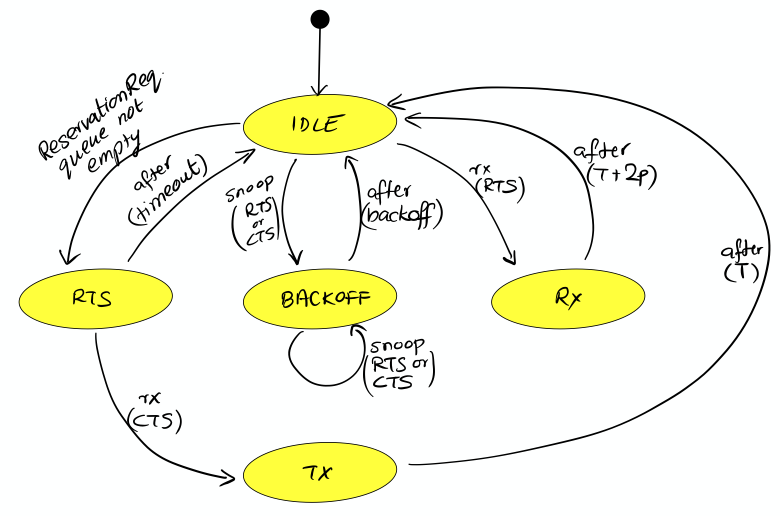 IDLE
ReservationReq.
queue not
empty
after
(timeout)
snoop
(RTS
or
CTS)
after
(backoff)
rx
(RTS)
after
(T+2p)
after
(T)
RTS
BACKOFF
Rx
snoop
(RTS or
CTS)
rx
(CTS)
TX